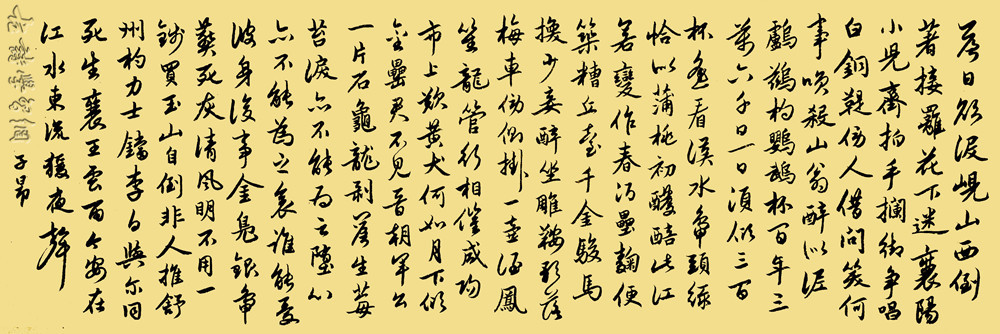 落日欲没峴山西倒
著接羅花下迷襄陽
小児齊拍手攔街争唱
白銅鞮傍人借問笑何
事笑殺山翁醉似泥
鸕鷀杓鸚鵡杯百年三
萬六千日一日須傾三百
杯遥看漢水鴨頭緑
恰以蒲桃初醱醅此江
若變作春酒壘麴便
築糟丘臺千金駿馬
換少妾醉坐雕鞍歌落
梅車傍側掛一壺酒鳳
笙龍管行相催咸陽
市上歎黄犬何如月下傾
金罍君不見晋朝羊公
一片石龜龍剥落生莓
苔淚亦不能為之墮心
亦不能為之哀誰能憂
彼身後事金鳬銀鴨
葬死灰清風明不用一
錢買玉山自倒非人推舒
州杓力士鐺李白與尓同
死生襄王雲雨今安在
江水東流猿夜聲
子昂